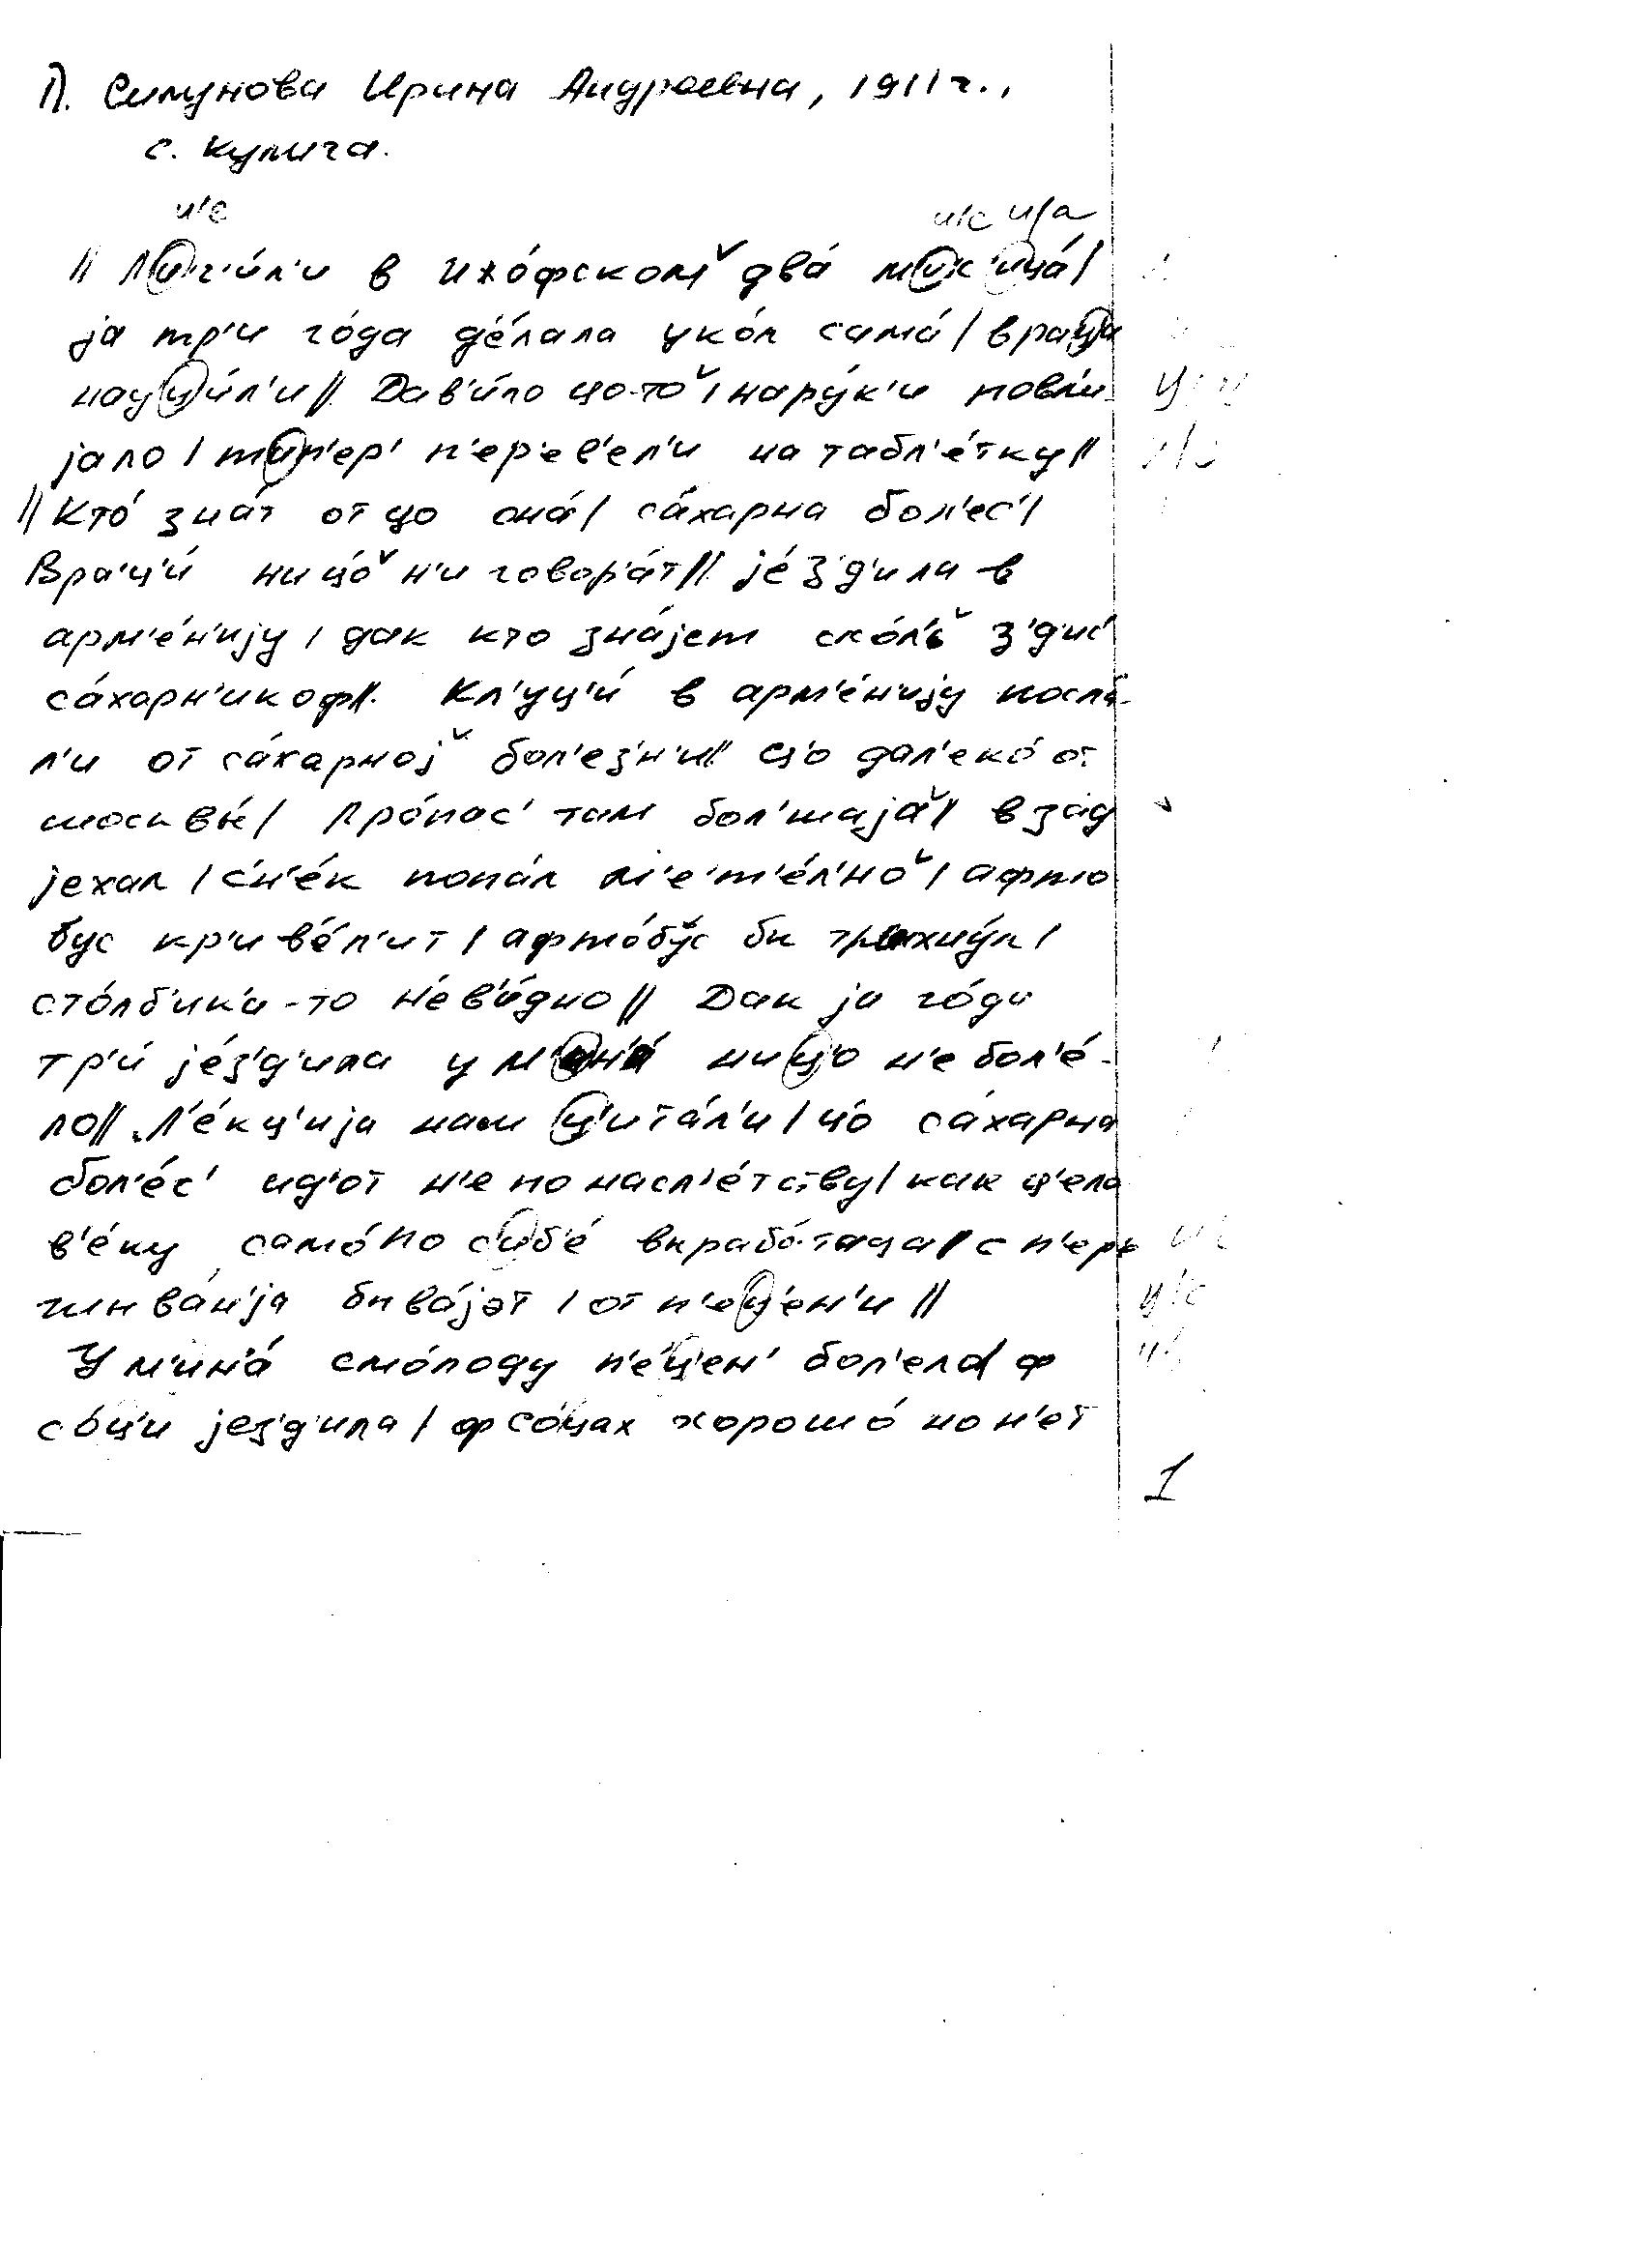 П. Силунова Ирина Андреевна, 1911 г.,
с. Кулига.
и/е и/е и/а
// Л'иг'и́л'и в ихо́фском два́ м'ис'ица́ /
ја тр'и го́да д'е́лала уко́л сама́ / враца
науц'и́л'и // Дав'и́ло цо-то / на ру́к'и повл'и-
јало / т'ип'ер' п'ер'ев'ел'и на табл'е́тку //
// Кто́ зна́т от цо она́ / са́харна бол'ес' /
Врац'и́ ницо́ н'и говор'а́т // је́з'д'ила в
арм'е́н'ију / дак кто зна́јет ско́л'ь з'д'ис'
са́харн'икоф //. Кл'уц'и́ в арм'е́н'ију посла́-
л'и от са́харној бол'ез'н'и // ц'о дал'еко́ от
москвы́ / Про́пас' там бол'шаја́ // взад
јехал / с'н'е́к попа́л м'ет'е́л'но / афто
бус кр'ив'е́л'ит / афто́бус бы трыхну́л /
сто́лб'ик'и-то н'е в'и́дно // Дак ја го́да
тр'и́ је́з'д'ила у м'ин'а́ ниц'о н'е бол'е́-
ло // Л'е́кц'ија нам ц'ита́л'и / цо са́харна
бол'е́с' ид'от н'е по насл'е́тству / как ц'ело
в'е́ку само́ по с'иб'е́ вырабо́таца // с п'ере
жыва́н'ја быва́јэт / от п'ец'ен'и //
У м'ин'а́ смо́лоду п'е́ц'ен' бол'ела / ф
со́ц'и јез'д'ила / ф со́цах хорошо́ но н'ет
у/ч
и/е
1